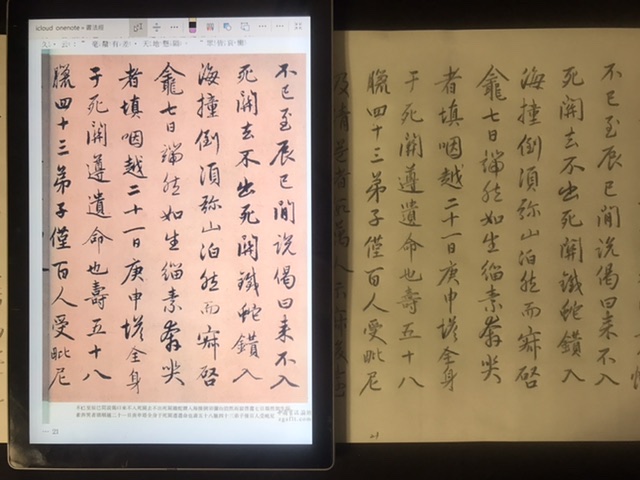 icloud onenote
不已至辰巳間說偈曰来不入
死關去不出死關鐵蛇鑽入
海撞倒須弥山泊然而寂啓
龕七日端然如生緇素奔哭
者填咽越二十一日庚申塔全身
于死關遵遺命也壽五十八
臘四十三弟子僅百人受毗尼
21
不已至辰巳間說偈曰来不入
死關去不出死關鐵蛇鑽入
海撞倒須弥山泊然而寂啓
龕七日端然如生緇素奔哭
者填咽越二十一日庚申塔全身
于死關遵遺命也壽五十八
臘四十三弟子僅百人受毗尼
21